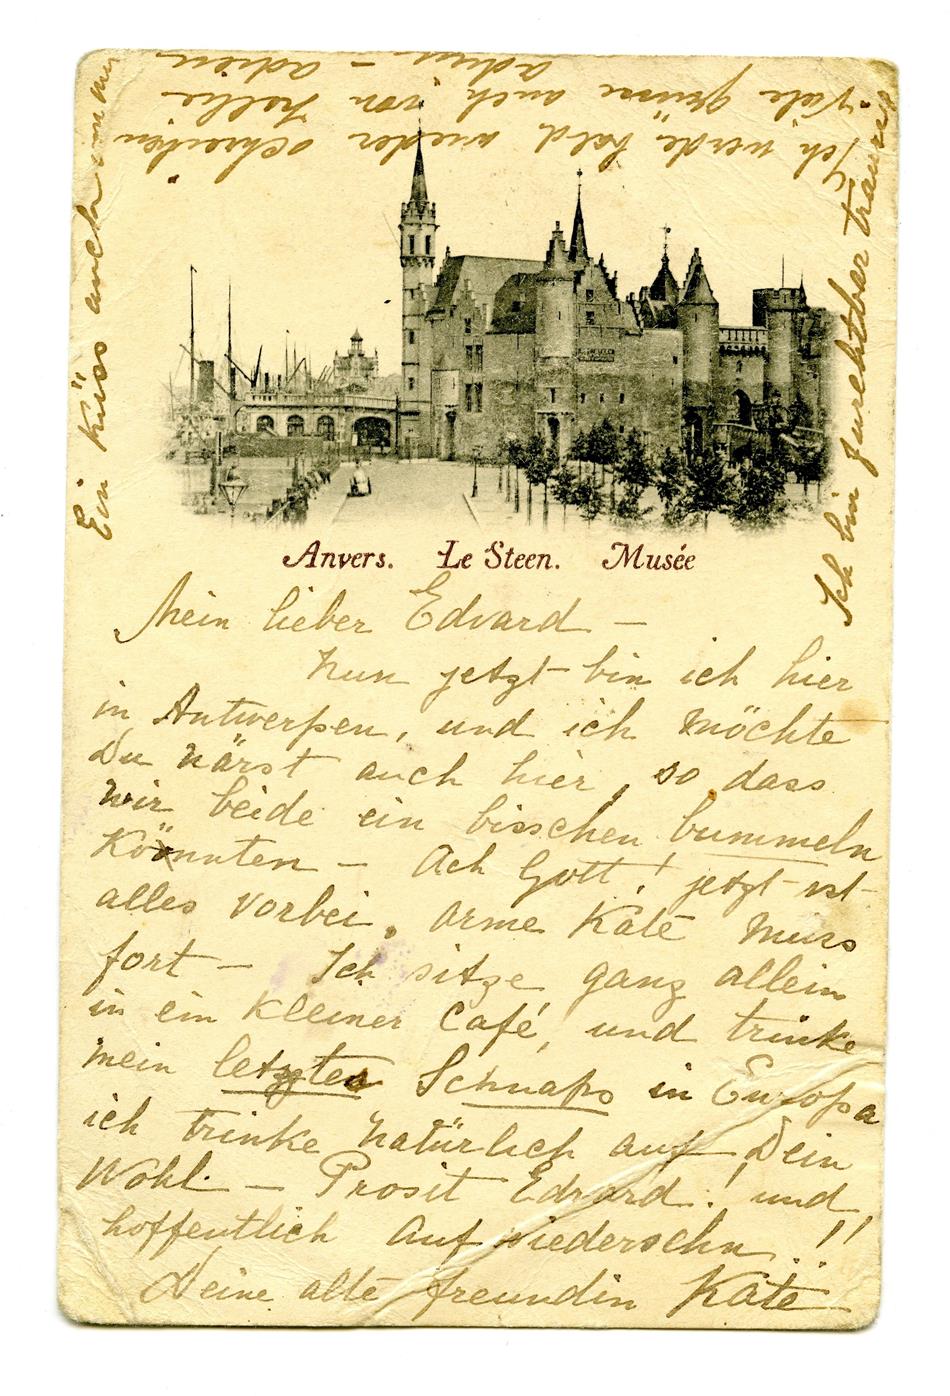 Anvers. Le Steen. Musée
Mein lieber Edvard —
Nun jetzt bin ich hier
in Antwerpen, und ich möchte
Du wärst auch hier, so dass
wir beide ein bisschen bummeln
könnten — Ach Gott! jetzt ist
alles vorbei, arme Kate muss
fort — Ich sitze ganz allein
in ein kleiner Café, und trinke
mein letzten Schnaps in Europa
ich trinke natürlich auf Dein
Wohl. — Prosit Edvard! und
hoffentlich auf wiedersehn!!
Deine alte freundin Käte
Ich bin furchtbar traurig
Ich werde bald wieder schreiben
Viele grüsse auch von
adieu — adieu
Ein Küss auch von mir